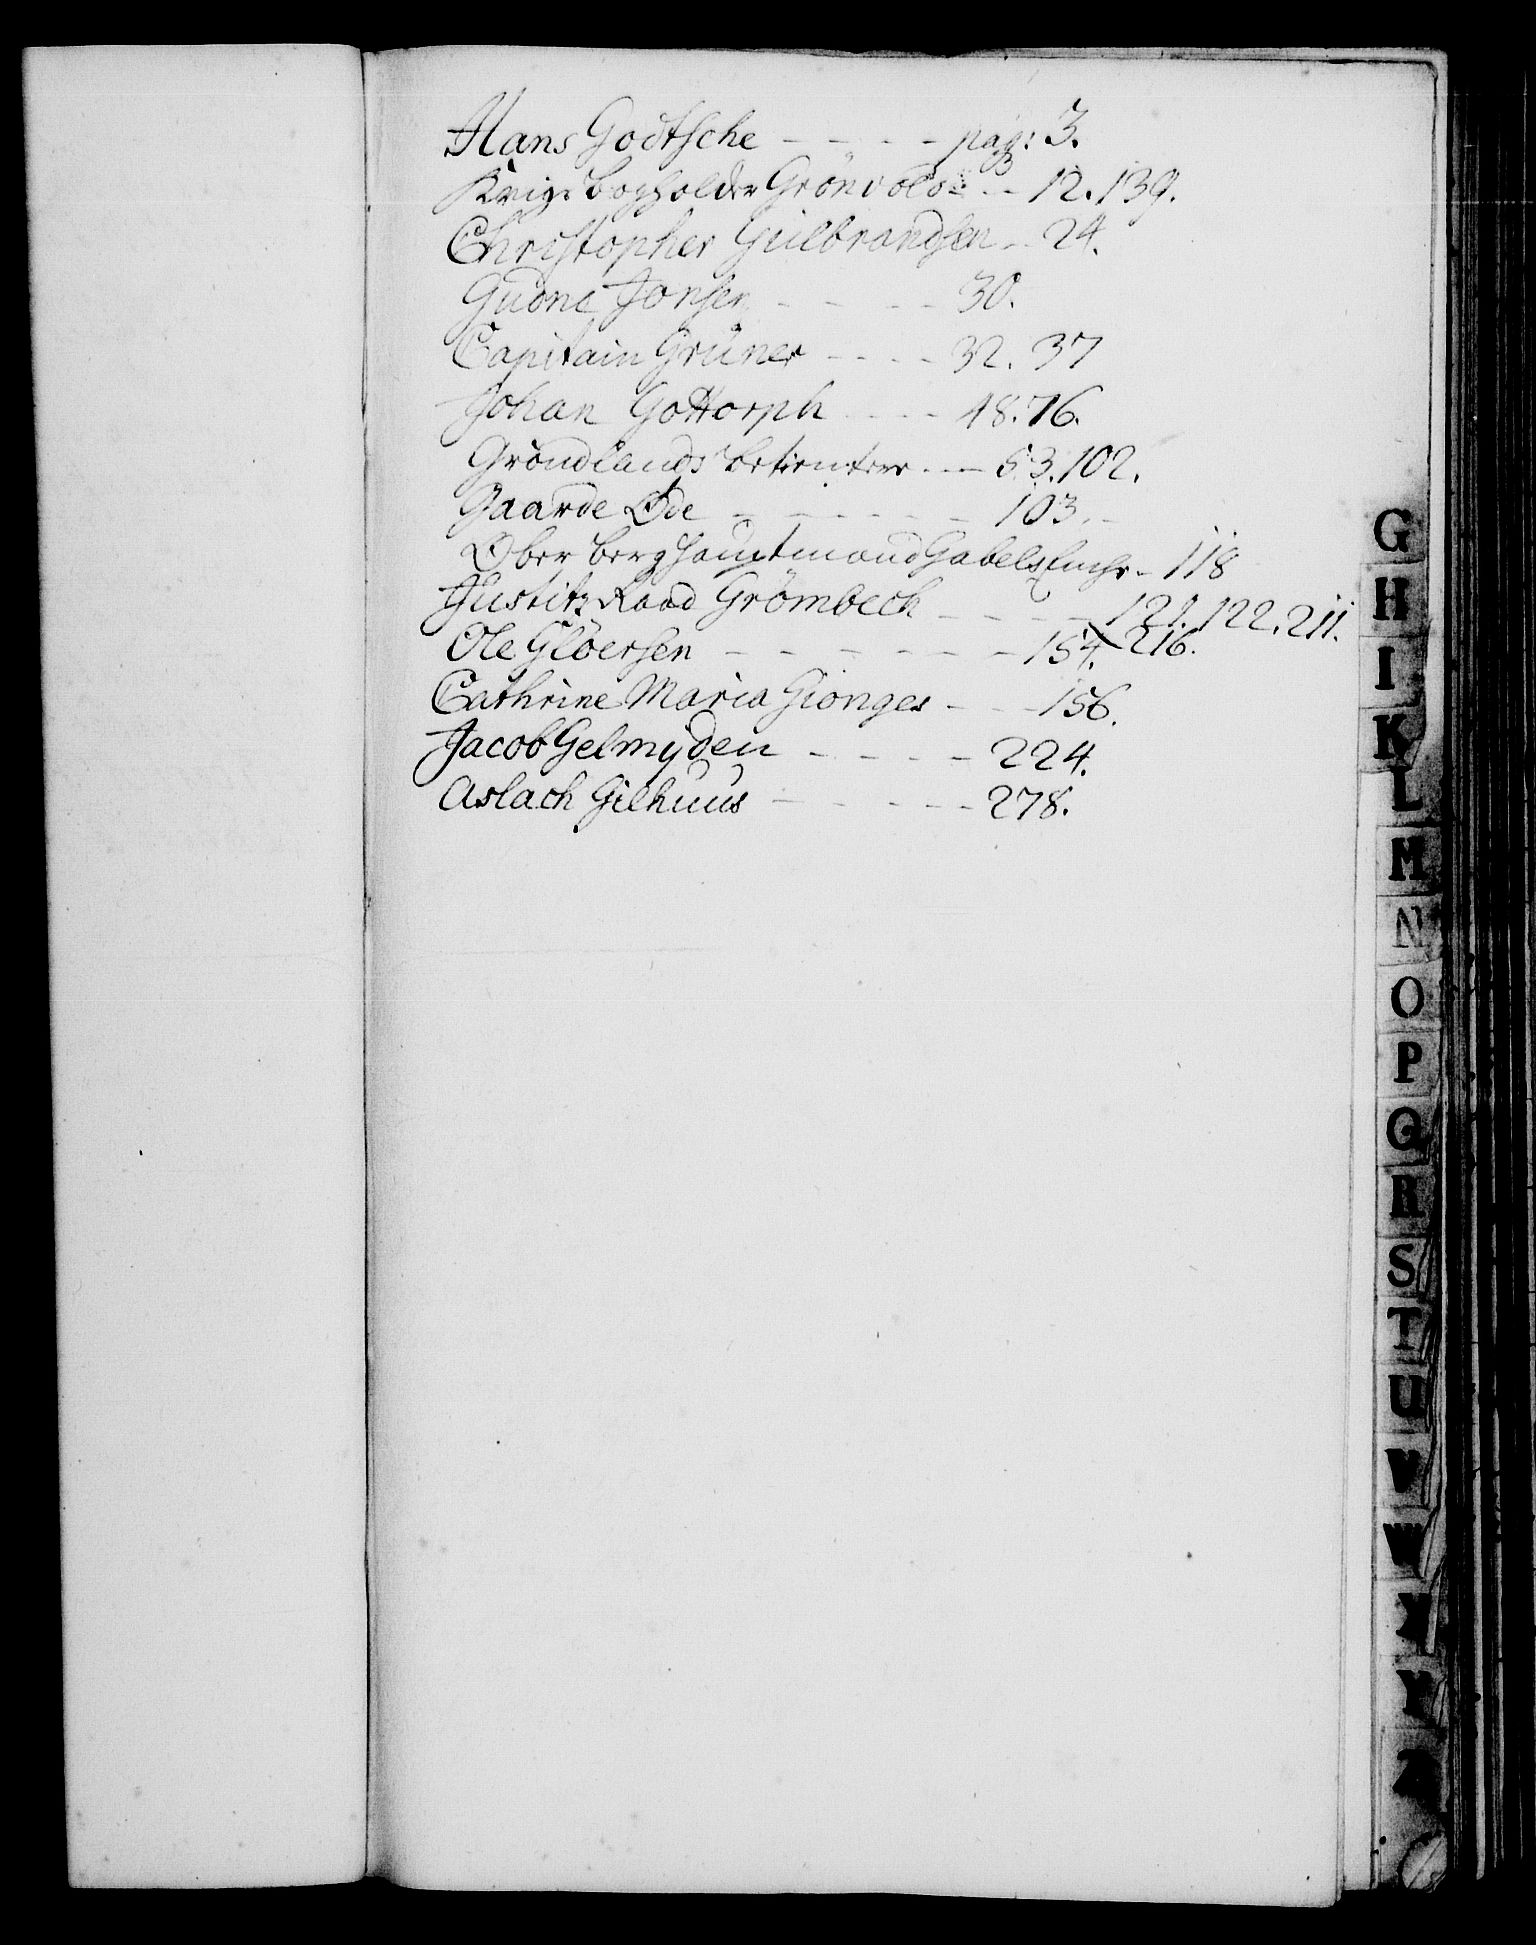 Hans Godtsche - - - - pag: 3.
Krigs bogholder Grönvolds - - 12. 139.
Christopher Gulbrandsen - - 24.
Gudne Jonsen - - - - 30.
Capitain Grüner - - - - 32. 37
Johan Gottorph - - - - 48. 76.
Gröndlands betientere - - - 53. 102.
Gaarde Øde - - - - - - 103.
Ober berghauptmand Gabels Encke - 118
Justitz Raad Grömbech - - - - 121. 122. 211.
216.
Ole Glöersen - - - - - - - 154.
Cathrine Maria Gionges - - - 156.
Jacob Gelmyden - - - - - 224.
Aslach Gilhuus - - - - - - 278.
G
H
I
K
L
M
N
O
P
Q
R
S
T
U
V
W
X
Y
Z